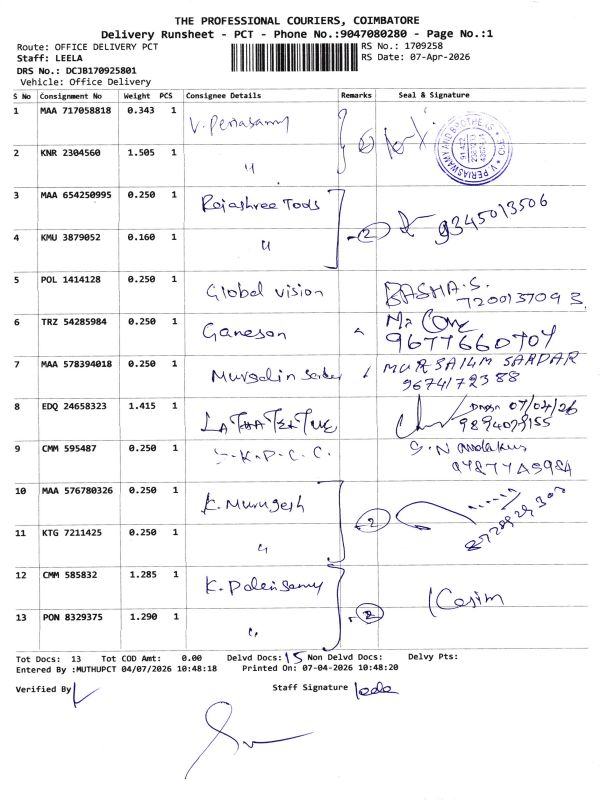 THE PROFESSIONAL COURIERS, COIMBATORE
Delivery Runsheet - PCT - Phone No.:9047080280 - Page No.:1
Route: OFFICE DELIVERY PCT RS No.: 1709258
Staff: LEELA RS Date: 07-Apr-2026
DRS No.: DCJB170925801
Vehicle: Office Delivery
S No Consignment No Weight PCS Consignee Details Remarks Seal & Signature
1 MAA 717058818 0.343 1 V. Periasamy
2 KNR 2304560 1.505 1 "
3 MAA 654250995 0.250 1 Rajashree Tools 2 9345013506
4 KMU 3879052 0.160 1 "
5 POL 1414128 0.250 1 Global vision BASHA.S.
7200137093
6 TRZ 54285984 0.250 1 Ganesan
9677660704
7 MAA 578394018 0.250 1 Mursalin MURSALIM SARDAR
9674172388
8 EDQ 24658323 1.415 1 07/04/26
9 CMM 595487 0.250 1 S.K.P.C.C.
10 MAA 576780326 0.250 1 K. Murugesh 2
11 KTG 7211425 0.250 1 "
12 CMM 585832 1.285 1 K. Palanisamy 2
13 PON 8329375 1.290 1 "
Tot Docs: 13 Tot COD Amt: 0.00 Delvd Docs: Non Delvd Docs: Delvy Pts:
Entered By :MUTHUPCT 04/07/2026 10:48:18 Printed On: 07-04-2026 10:48:20
Verified By Staff Signature Leela